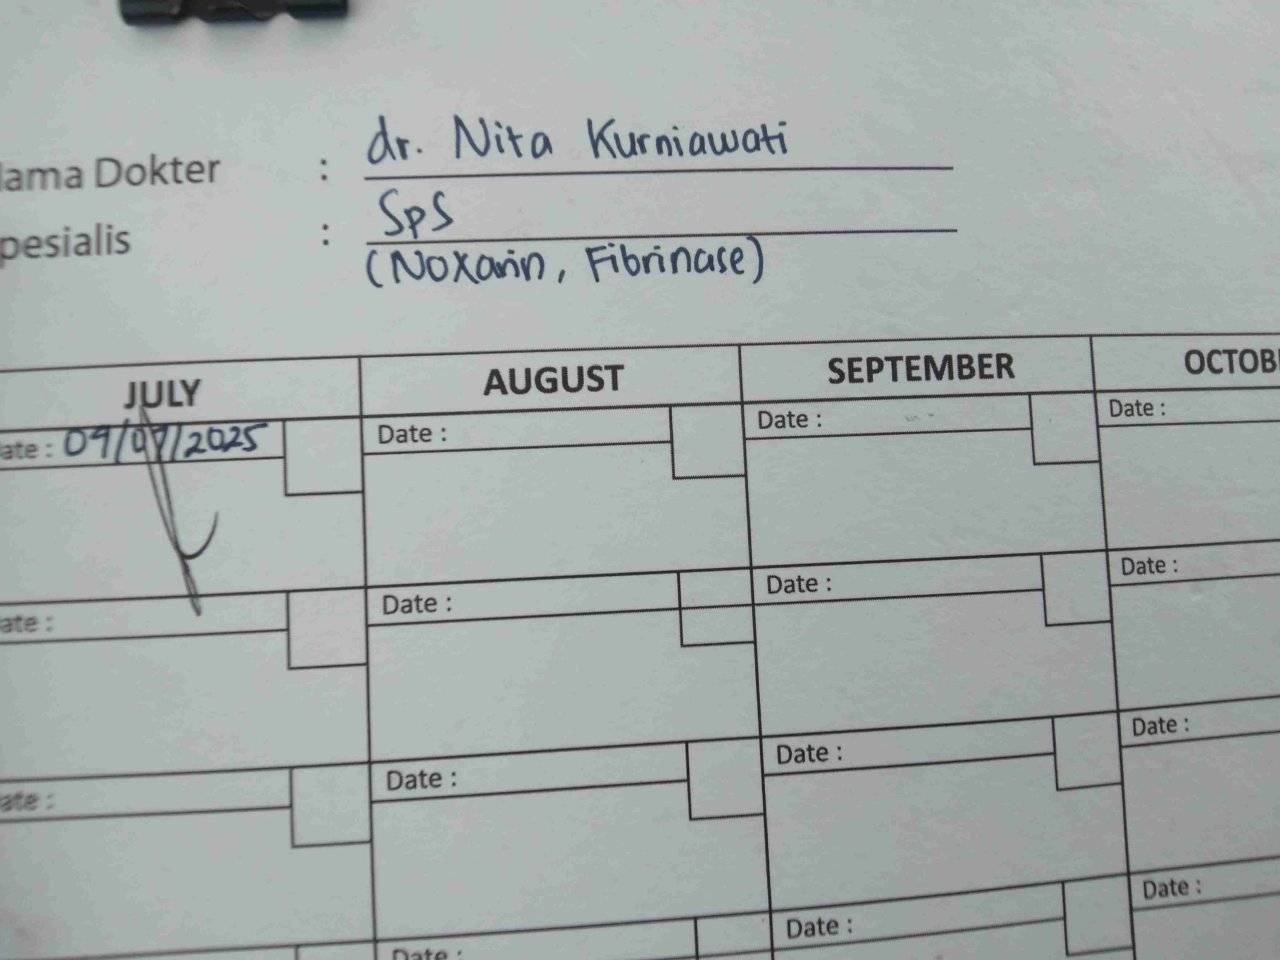 lama Dokter : dr. Nita Kurniawati
pesialis : SpS
(Noxarin, Fibrinase)
JULY AUGUST SEPTEMBER OCTOB
ate : 09/07/2025 Date : Date : Date :
ate : Date : Date : Date :
ate : Date : Date : Date :
Date : Date : Date :